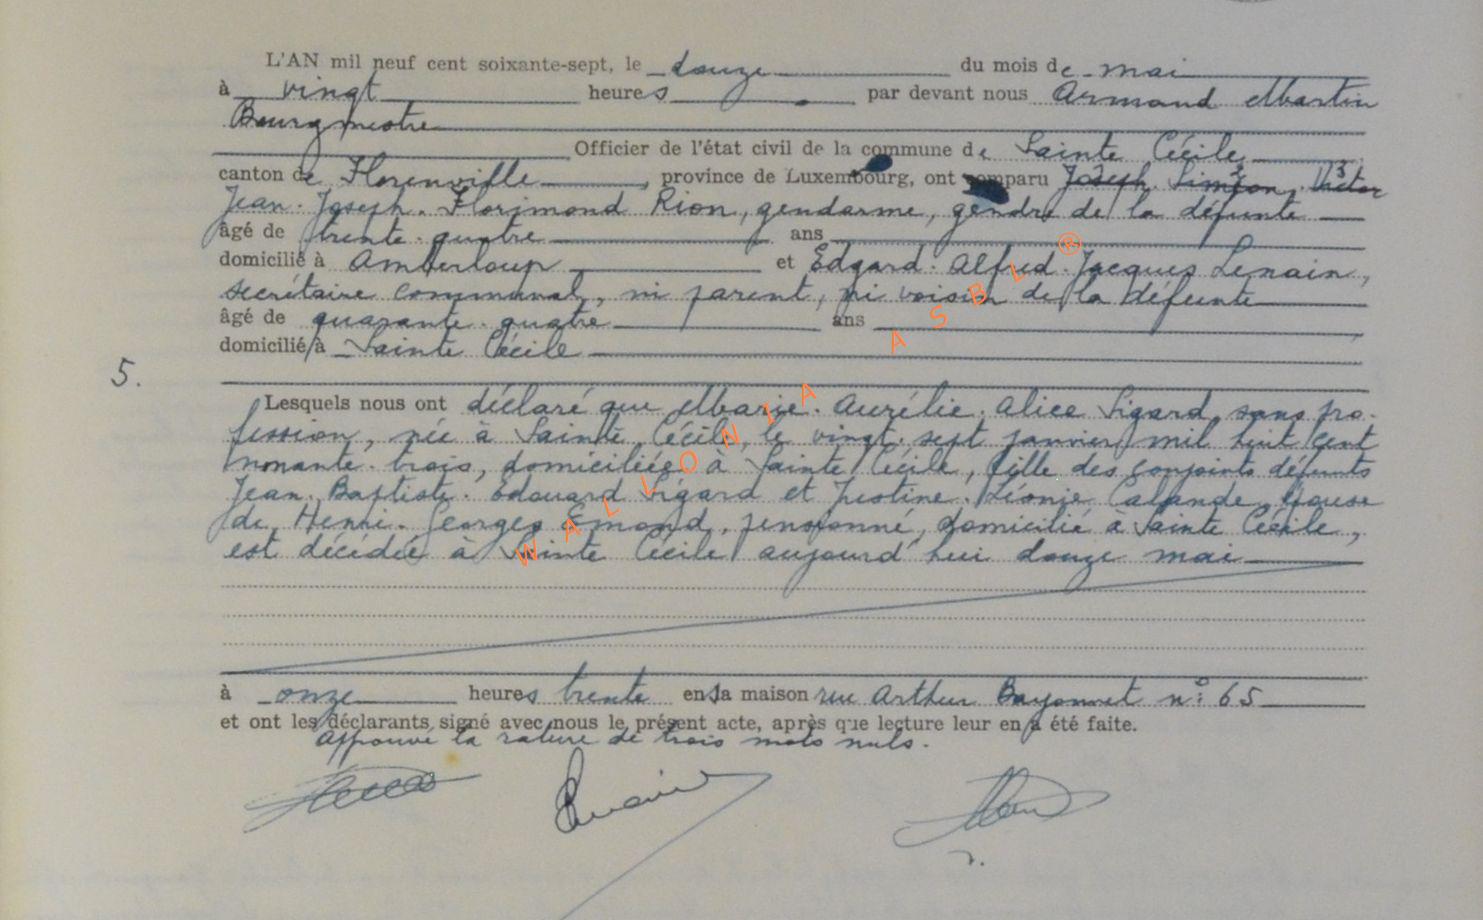 L'AN mil neuf cent soixante-sept, le douze du mois de mai
à vingt heures par devant nous Armand Martin
Bourgmestre
Officier de l'état civil de la commune de Sainte Cécile
canton de Florenville, province de Luxembourg, ont comparu Joseph, Siméon, Victor
Jean-Joseph-Florimond Rion, gendarme, gendre de la défunte
âgé de trente-quatre ans
domicilié à Amberloup et Edgard-Alfred-Jacques Lemain,
secrétaire communal, ni parent, ni voisin de la défunte
âgé de quarante-quatre ans
domicilié à Sainte Cécile
5.
Lesquels nous ont déclaré que Marie-Aurélie-Alice Sigard, sans pro-
fession, née à Sainte Cécile, le vingt-sept janvier mil huit cent
nonante-trois, domiciliée à Sainte Cécile, fille des conjoints défunts
Jean-Baptiste-Edouard Sigard et Justine-Léonie Calande, épouse
de Henri-Georges Emond, pensionné, domicilié à Sainte Cécile,
est décédée à Sainte Cécile aujourd'hui douze mai
à onze heures trente en sa maison rue Arthur Bayonnet n° 65
et ont les déclarants signé avec nous le présent acte, après que lecture leur en a été faite.
Approuvé la rature de trois mots nuls.
WALLONIA ASBL ®